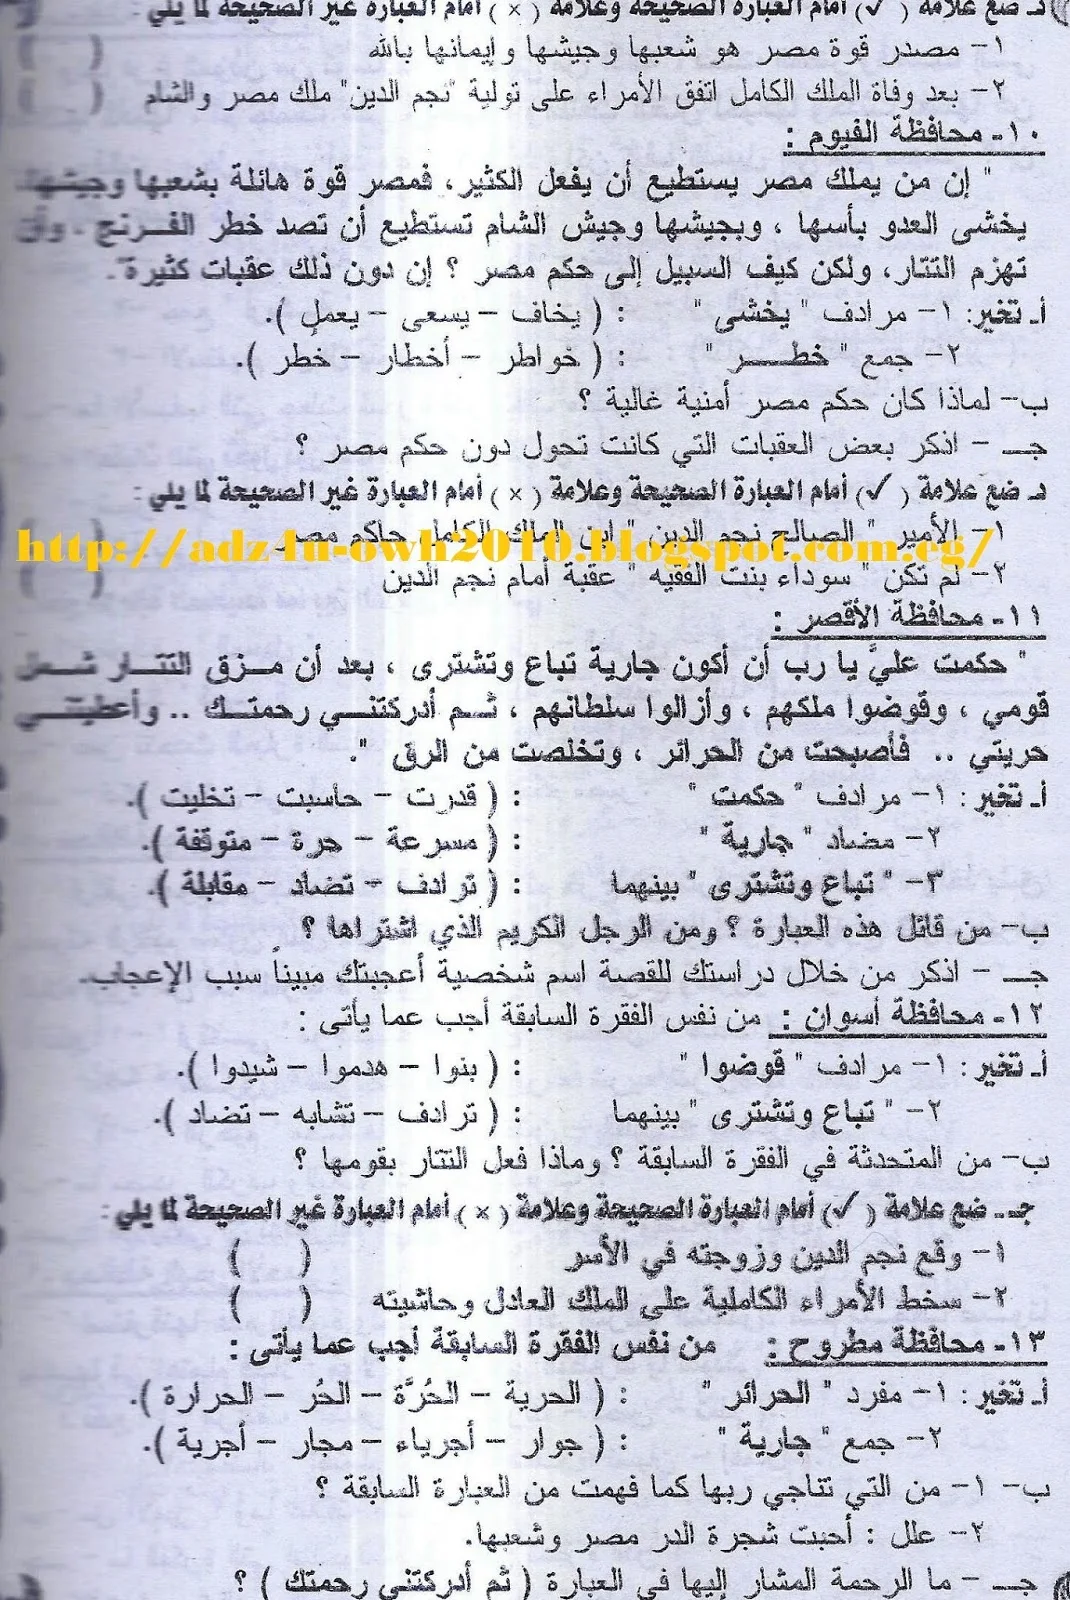 د ـ ضع علامة ( ✓ ) أمام العبارة الصحيحة وعلامة ( × ) أمام العبارة غير الصحيحة لما يلي :
١- مصدر قوة مصر هو شعبها وجيشها وإيمانها بالله ( )
٢- بعد وفاة الملك الكامل اتفق الأمراء على تولية "نجم الدين" ملك مصر والشام ( )
١٠- محافظة الفيوم :
" إن من يملك مصر يستطيع أن يفعل الكثير، فمصر قوة هائلة بشعبها وجيشها،
يخشى العدو بأسها ، وبجيشها وجيش الشام تستطيع أن تصد خطر الفـرنج . وأن
تهزم التتار، ولكن كيف السبيل إلى حكم مصر ؟ إن دون ذلك عقبات كثيرة".
أـ تخير: ١- مرادف " يخشى " : ( يخاف – يسعى – يعمل ).
٢- جمع " خطـــر " : ( خواطر – أخطار – خطر ).
ب- لماذا كان حكم مصر أمنية غالية ؟
جـ - اذكر بعض العقبات التي كانت تحول دون حكم مصر ؟
د ـ ضع علامة ( ✓ ) أمام العبارة الصحيحة وعلامة ( × ) أمام العبارة غير الصحيحة لما يلي :
١- الأمير " الصالح نجم الدين " ابن الملك الكامل حاكم مصر ( )
http://adz4u-owh2010.blogspot.com.eg/
٢- لم تكن " سوداء بنت الفقيه " عقبة أمام نجم الدين ( )
١١- محافظة الأقصر :
" حكمت عليَّ يا رب أن أكون جارية تباع وتشترى ، بعد أن مـزق التتـار شـمل
قومي ، وقوضوا ملكهم ، وأزالوا سلطانهم ، ثـم أدركتنـي رحمتـك .. وأعطيتنـي
حريتي .. فأصبحت من الحرائر ، وتخلصت من الرق ".
أـ تخير : ١- مرادف " حكمت " : ( قدرت – حاسبت – تخليت ).
٢- مضاد " جارية " : ( مسرعة – حرة – متوقفة ).
٣- " تباع وتشترى " بينهما : ( ترادف – تضاد – مقابلة ).
ب- من قائل هذه العبارة ؟ ومن الرجل الكريم الذي اشتراها ؟
جـ - اذكر من خلال دراستك للقصة اسم شخصية أعجبتك مبيناً سبب الإعجاب.
١٢- محافظة أسوان : من نفس الفقرة السابقة أجب عما يأتى :
أـ تخير : ١- مرادف " قوضوا " : ( بنوا – هدموا – شيدوا ).
٢- " تباع وتشترى " بينهما : ( ترادف – تشابه – تضاد ).
ب- من المتحدثة في الفقرة السابقة ؟ وماذا فعل التتار بقومها ؟
جـ ـ ضع علامة ( ✓ ) أمام العبارة الصحيحة وعلامة ( × ) أمام العبارة غير الصحيحة لما يلي :
١- وقع نجم الدين وزوجته في الأسر ( )
٢- سخط الأمراء الكاملية على الملك العادل وحاشيته ( )
١٣- محافظة مطروح : من نفس الفقرة السابقة أجب عما يأتى :
أـ تخير : ١- مفرد " الحرائر " : ( الحرية – الحُرَّة – الحُر – الحرارة ).
٢- جمع " جارية " : ( جوار – أجرياء – مجار – أجرية ).
ب- ١- من التي تناجي ربها كما فهمت من العبارة السابقة ؟
٢- علل : أحبت شجرة الدر مصر وشعبها.
جـ - ما الرحمة المشار إليها فى العبارة ( ثم أدركتنى رحمتك ) ؟